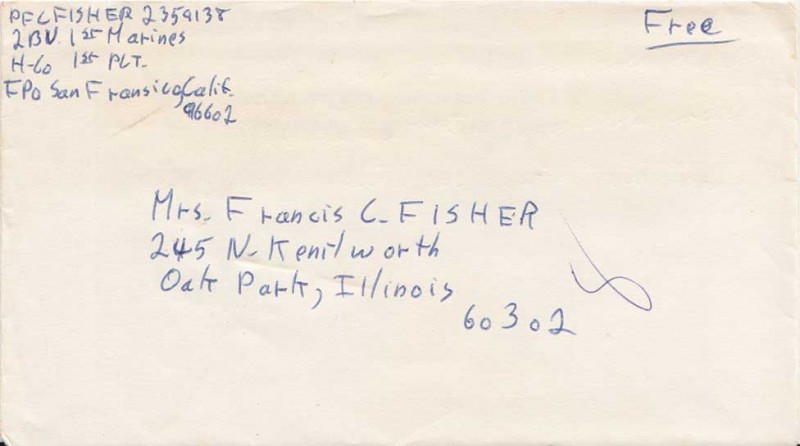 PFC FISHER 2359138
2BN. 1st Marines
H-Co 1st PLT.
FPO San Fransico, Calif.
96602
Free
Mrs. Francis C. FISHER
245 N. Kenilworth
Oak Park, Illinois
60302